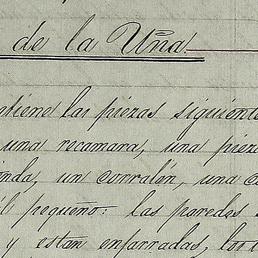 de la Uña.
las piezas siguiente
una recamara, una piez
un corralón, una c
pequeño: las paredes
y estan enjarradas, los